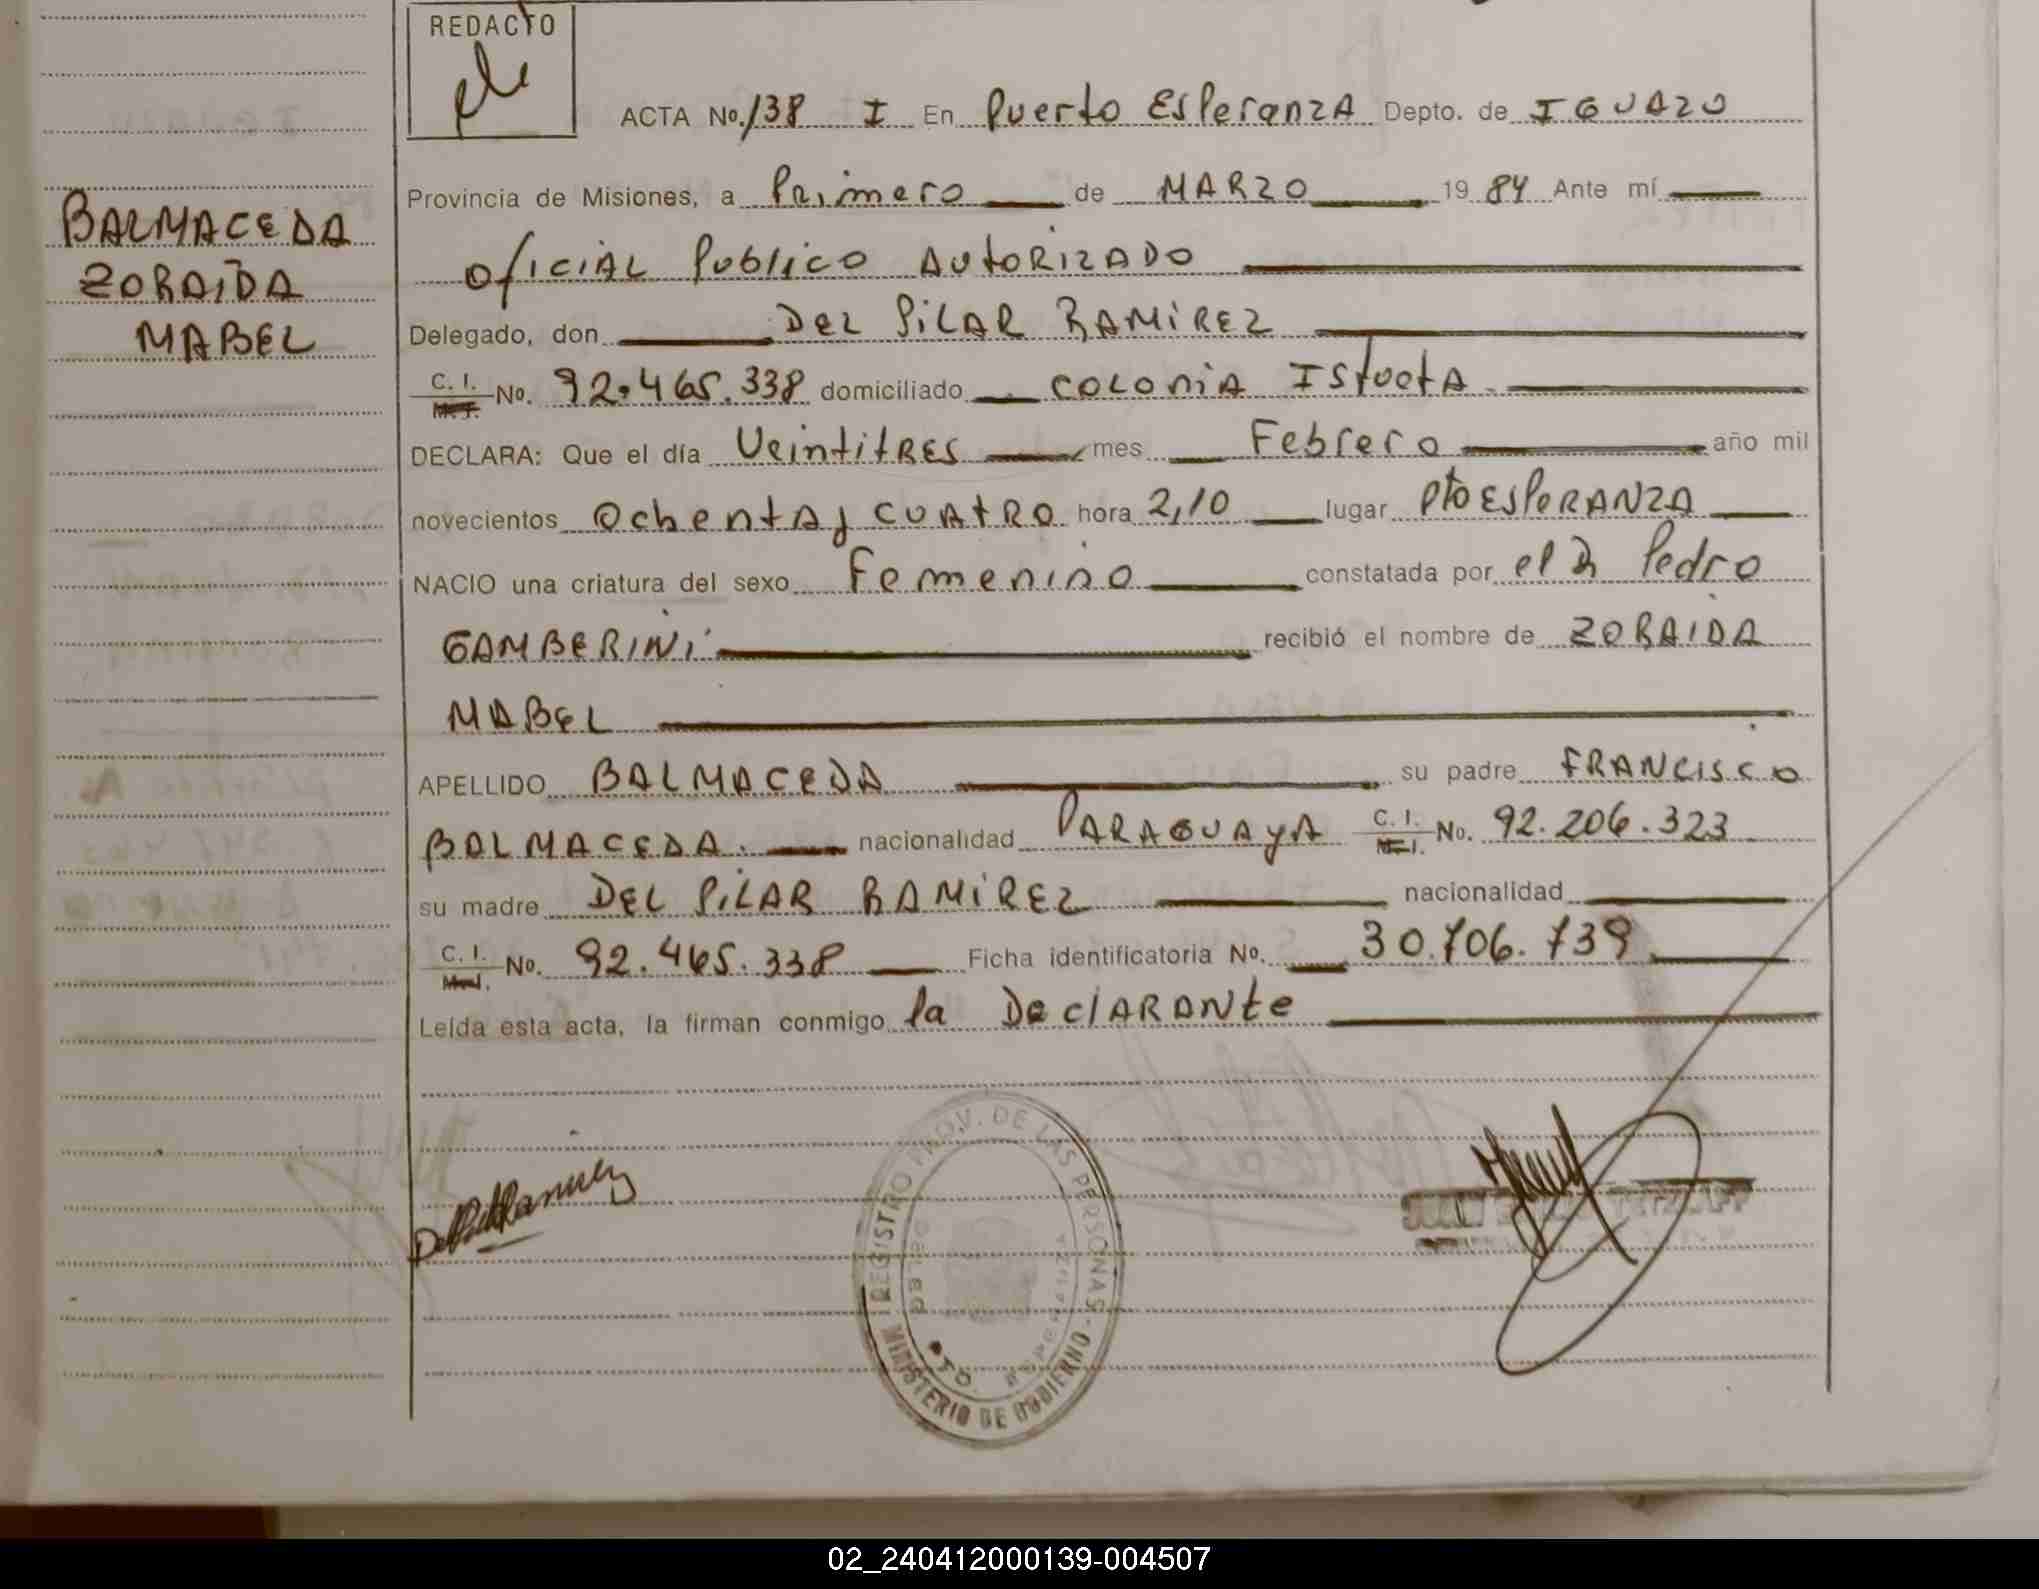 REDACTO
ACTA No. 138 I En Puerto Esperanza Depto. de IGUAZU
Provincia de Misiones, a Primero de MARZO 1984 Ante mí
BALMACEDA
ZORAIDA
MABEL
Oficial Publico Autorizado
Delegado, don DEL PiLAR RAMIREZ
C. I. M. I. No. 92.465.338 domiciliado COLONIA ISTUETA
DECLARA: Que el día VeintitRES mes Febrero año mil
novecientos Ochenta y CUATRO hora 2,10 lugar Pto ESPERANZA
NACIO una criatura del sexo Femenino constatada por el Dr Pedro
GAMBERINI recibió el nombre de ZORAIDA
MABEL
APELLIDO BALMACEDA su padre FRANCISCO
BALMACEDA. nacionalidad PARAGUAYA C. I. M. I. No. 92.206.323
su madre DEL PILAR RAMIREZ nacionalidad
C. I. M. I. No. 92.465.338 Ficha identificatoria No. 30.706.739
Leída esta acta, la firman conmigo la DeclARANte
REGISTRO PROV. DE LAS PERSONAS -
MINISTERIO DE GOBIERNO
02_240412000139-004507